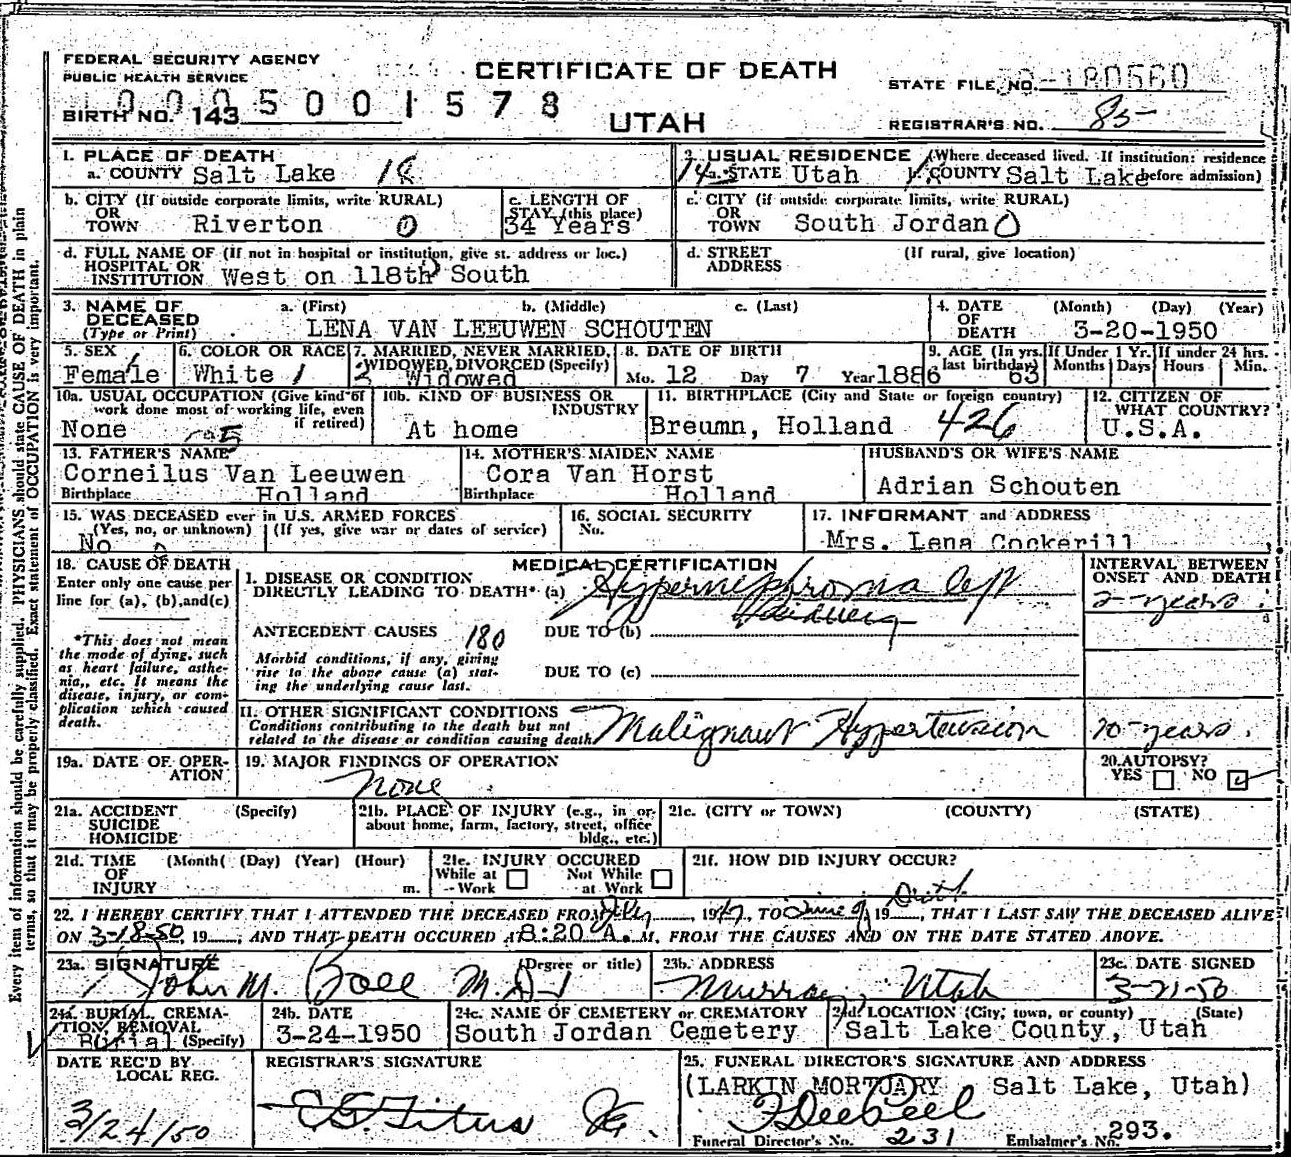 FEDERAL SECURITY AGENCY
PUBLIC HEALTH SERVICE
CERTIFICATE OF DEATH
STATE FILE NO. 180560
0005001578
BIRTH NO. 143
UTAH
REGISTRAR'S NO. 85-
1. PLACE OF DEATH
a. COUNTY Salt Lake 18
2. USUAL RESIDENCE (Where deceased lived. If institution: residence before admission)
a. STATE Utah COUNTY Salt Lake
b. CITY (If outside corporate limits, write RURAL)
OR
TOWN Riverton 0
c. LENGTH OF
STAY (this place)
34 Years
c. CITY (if outside corporate limits, write RURAL)
OR
TOWN South Jordan 0
d. FULL NAME OF (If not in hospital or institution, give st. address or loc.)
HOSPITAL OR
INSTITUTION West on 118th South
d. STREET (If rural, give location)
ADDRESS
3. NAME OF a. (First) b. (Middle) c. (Last)
DECEASED
(Type or Print) LENA VAN LEEUWEN SCHOUTEN
4. DATE (Month) (Day) (Year)
OF
DEATH 3-20-1950
5. SEX
Female
6. COLOR OR RACE
White 1
7. MARRIED, NEVER MARRIED,
WIDOWED, DIVORCED (Specify)
2 Widowed
8. DATE OF BIRTH
Mo. 12 Day 7 Year 1886
9. AGE (In yrs. last birthday) 63
If Under 1 Yr. Months Days
If under 24 hrs. Hours Min.
10a. USUAL OCCUPATION (Give kind of
work done most of working life, even
if retired)
None
10b. KIND OF BUSINESS OR
INDUSTRY
At home
11. BIRTHPLACE (City and State or foreign country)
Breumn, Holland 426
12. CITIZEN OF
WHAT COUNTRY?
U.S.A.
13. FATHER'S NAME
Corneilus Van Leeuwen
Birthplace Holland
14. MOTHER'S MAIDEN NAME
Cora Van Horst
Birthplace Holland
HUSBAND'S OR WIFE'S NAME
Adrian Schouten
15. WAS DECEASED ever in U.S. ARMED FORCES
(Yes, no, or unknown) (If yes, give war or dates of service)
No
16. SOCIAL SECURITY
No.
17. INFORMANT and ADDRESS
Mrs. Lena Cockerill
18. CAUSE OF DEATH
Enter only one cause per
line for (a), (b), and (c)
*This does not mean
the mode of dying, such
as heart failure, asthe-
nia,, etc. It means the
disease, injury, or com-
plication which caused
death.
MEDICAL CERTIFICATION
I. DISEASE OR CONDITION
DIRECTLY LEADING TO DEATH* (a) Hypernephroma left
Kidney
ANTECEDENT CAUSES 180 DUE TO (b)
Morbid conditions, if any, giving
rise to the above cause (a) stat-
ing the underlying cause last.
DUE TO (c)
INTERVAL BETWEEN
ONSET AND DEATH
2-years.
II. OTHER SIGNIFICANT CONDITIONS
Conditions contributing to the death but not
related to the disease or condition causing death
Malignant Hypertension
10-years.
19a. DATE OF OPER-
ATION
19. MAJOR FINDINGS OF OPERATION
None
20. AUTOPSY?
YES NO
21a. ACCIDENT (Specify)
SUICIDE
HOMICIDE
21b. PLACE OF INJURY (e.g., in or
about home, farm, factory, street, office
bldg., etc.)
21c. (CITY or TOWN) (COUNTY) (STATE)
21d. TIME (Month( (Day) (Year) (Hour)
OF
INJURY m.
21e. INJURY OCCURED
While at Work
Not While at Work
21f. HOW DID INJURY OCCUR?
22. I HEREBY CERTIFY THAT I ATTENDED THE DECEASED FROM July, 1947, TO 19, THAT I LAST SAW THE DECEASED ALIVE
ON 3-18-50, 19, AND THAT DEATH OCCURED AT 8:20 A. M. FROM THE CAUSES AND ON THE DATE STATED ABOVE.
23a. SIGNATURE (Degree or title)
John M. M.D.
23b. ADDRESS
Murray, Utah
23c. DATE SIGNED
3-21-50
24a. BURIAL, CREMA-
TION, REMOVAL
Burial (Specify)
24b. DATE
3-24-1950
24c. NAME OF CEMETERY or CREMATORY
South Jordan Cemetery
24d. LOCATION (City, town, or county) (State)
Salt Lake County, Utah
DATE REC'D BY
LOCAL REG.
3/24/50
REGISTRAR'S SIGNATURE
25. FUNERAL DIRECTOR'S SIGNATURE AND ADDRESS
(LARKIN MORTUARY Salt Lake, Utah)
Funeral Director's No. 231 Embalmer's No. 293.
Every item of information should be carefully supplied. PHYSICIANS should state CAUSE OF DEATH in plain
terms, so that it may be properly classified. Exact statement of OCCUPATION is very important.